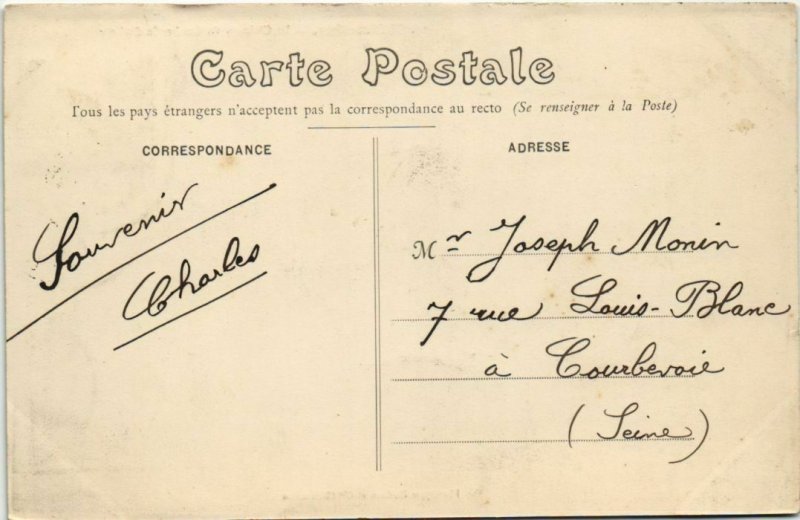 Carte Postale
Tous les pays étrangers n'acceptent pas la correspondance au recto (Se renseigner à la Poste)
CORRESPONDANCE
Souvenir
Charles
ADRESSE
Mr Joseph Monin
7 rue Louis-Blanc
à Courbevoie
(Seine)